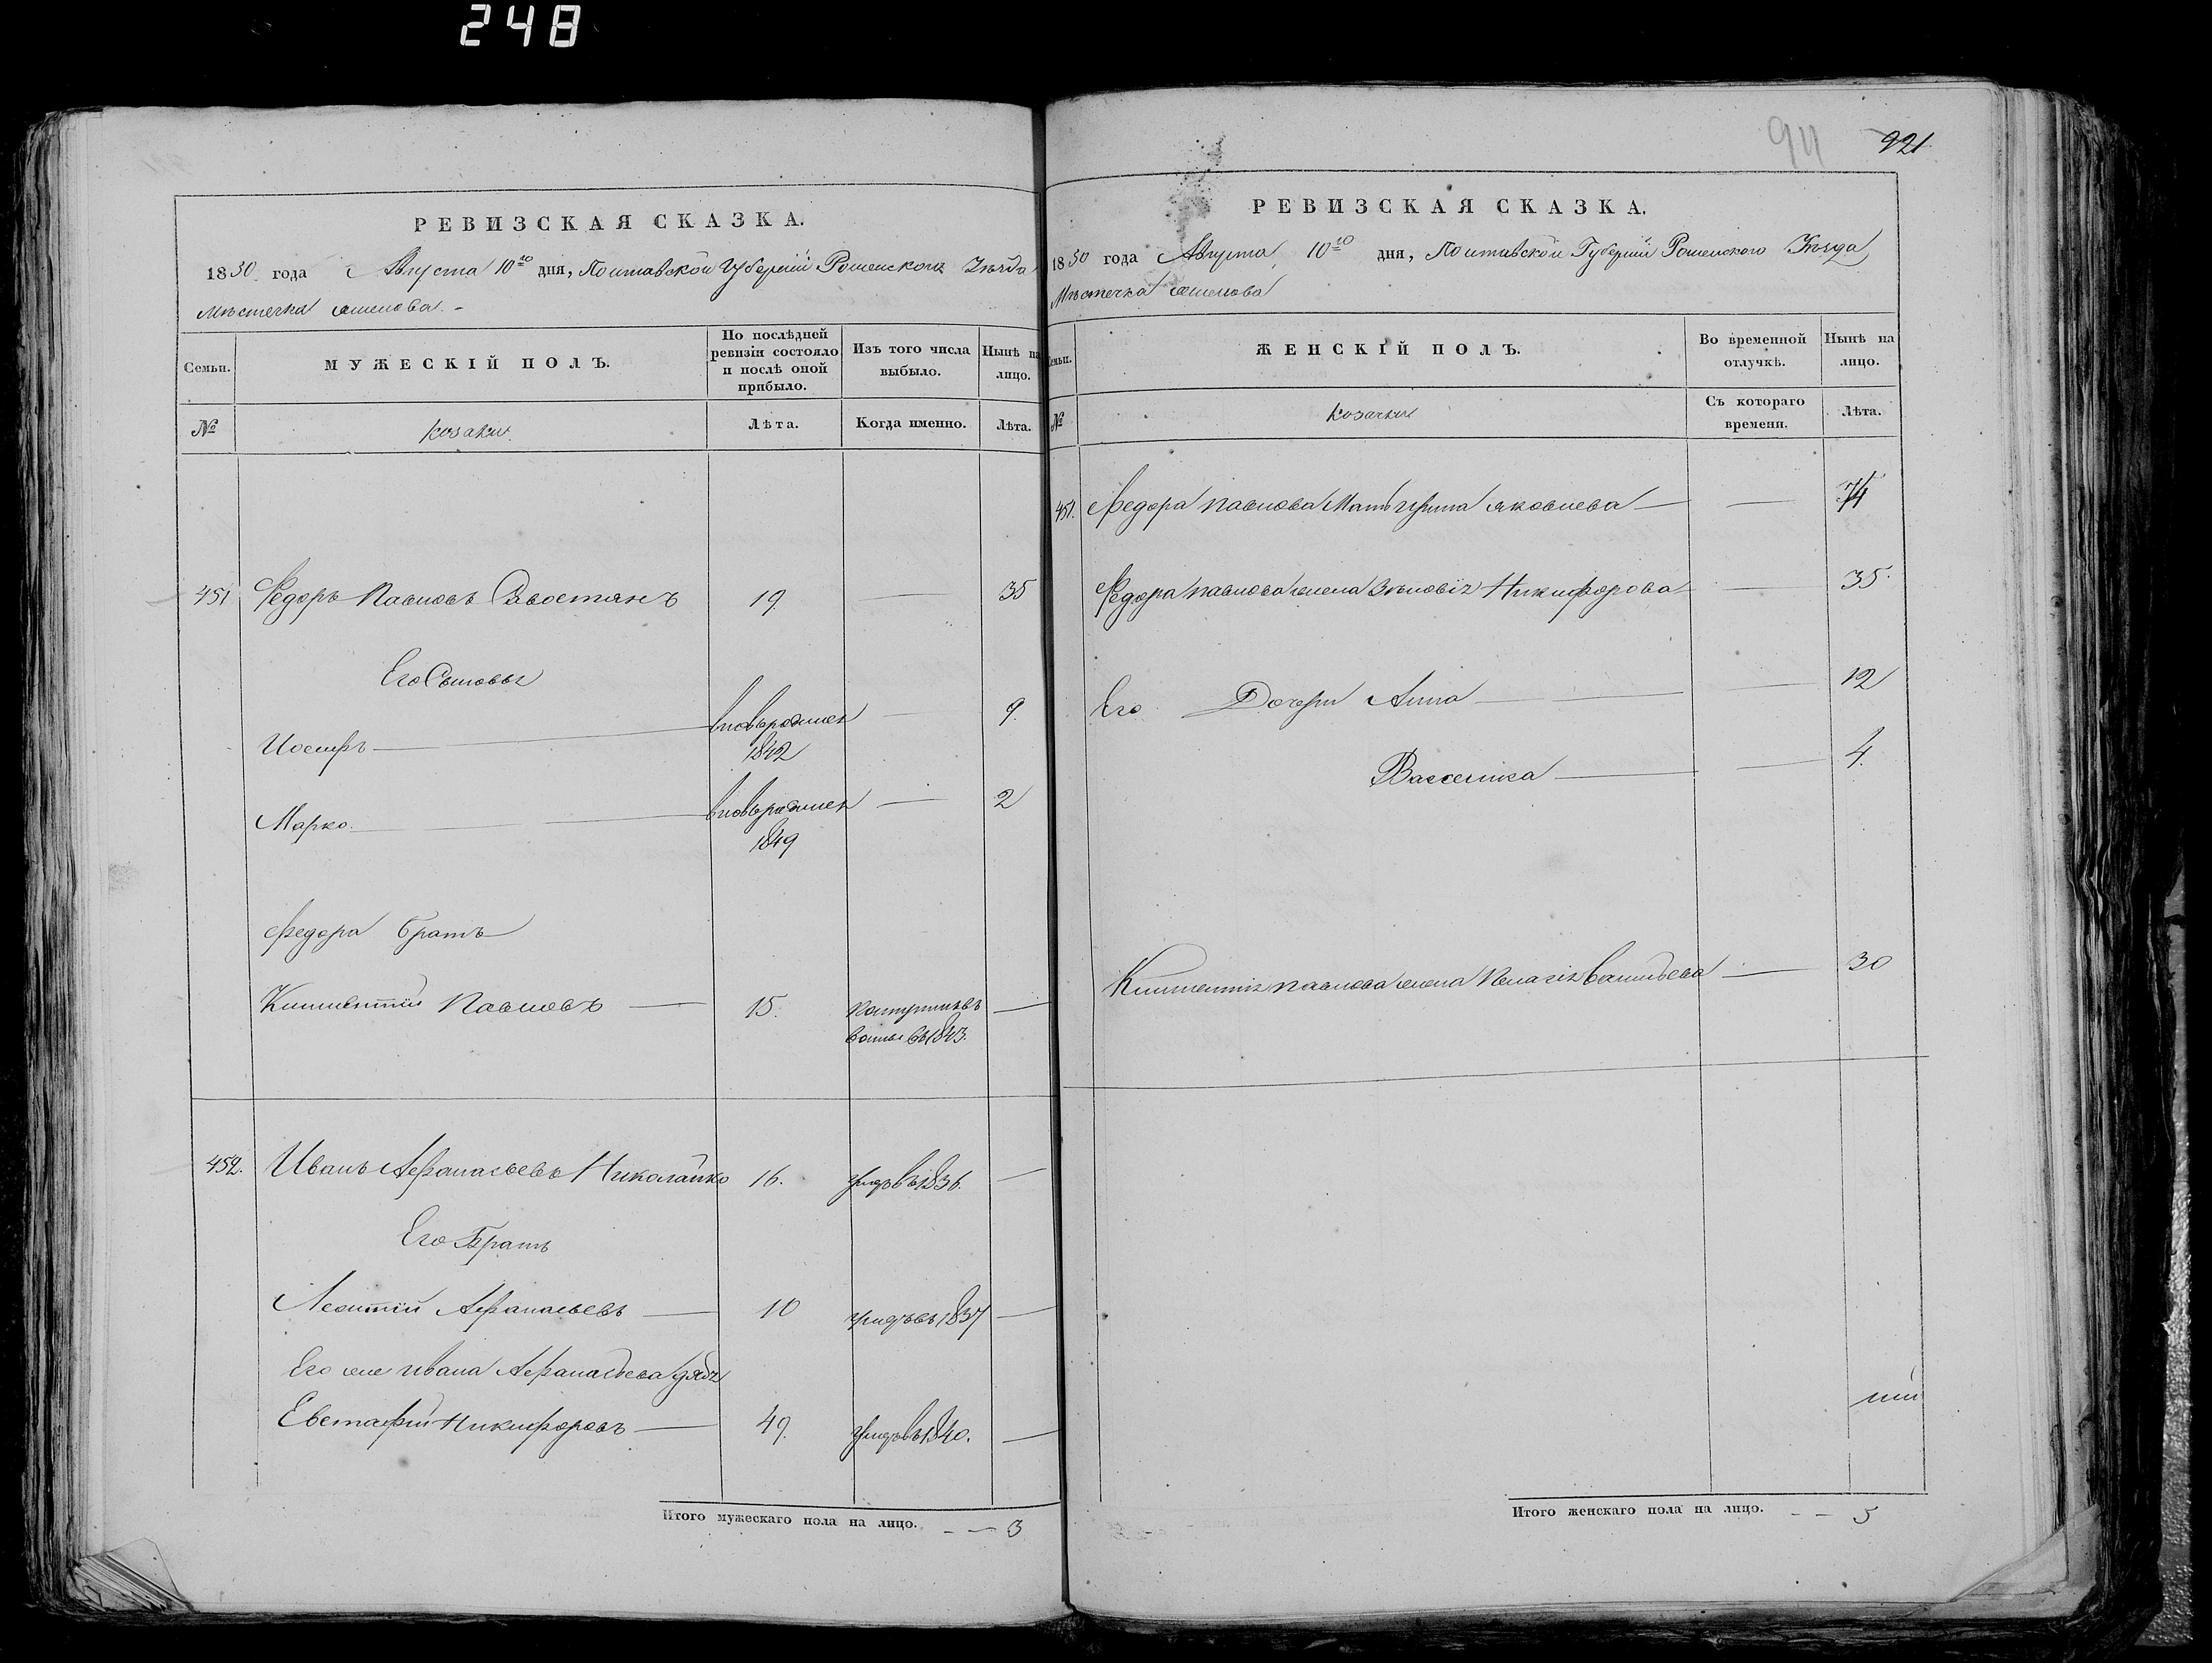 248
РЕВИЗСКАЯ СКАЗКА.
1850 года Августа 10го дня, Полтавской Губернiи Роменского Уѣзда
Мѣстечка Смелова. -
Семьи.
МУЖЕСКIЙ ПОЛЪ.
По послѣдней ревизiи состояло и послѣ оной прибыло.
Изъ того числа выбыло.
Нынѣ на лицо.
№
козаки.
Лѣта.
Когда именно.
Лѣта.
451 Федоръ Павловъ 19 — 35
Его Сыновья
Иосифъ — вновьрожден 1842 — 9.
Марко. — вновьрожден 1849 — 2
Федора братъ
Климентiй Павловъ — 15. въ 1843. —
452. Иванъ Афанасьевъ Николайко 16. умръ въ 1836. —
Его Братъ
Леонтiй Афанасьевъ — 10 умръ въ 1837 —
Его же Ивана Афанасьева дядя
Евстафiй Никифоровъ — 49. умръ въ 1840. —
Итого мужескаго пола на лицо. - - 3
94 921
РЕВИЗСКАЯ СКАЗКА.
1850 года Августа 10го дня, Полтавской Губернiи Роменского Уѣзда
Мѣстечка Смелова
Семьи.
ЖЕНСКIЙ ПОЛЪ.
Во временной отлучкѣ.
Нынѣ на лицо.
№
козачки
Съ котораго времени.
Лѣта.
451. Федора Павлова Мать Ирина Яковлева — — 74
Федора Павлова жена Зѣновiя Никифорова — — 35.
Его Дочери Анна — — 12
Васселиса — — 4.
Климентiя Павлова жена Пелагiя Савильева — 30
Итого женскаго пола на лицо. - - 5